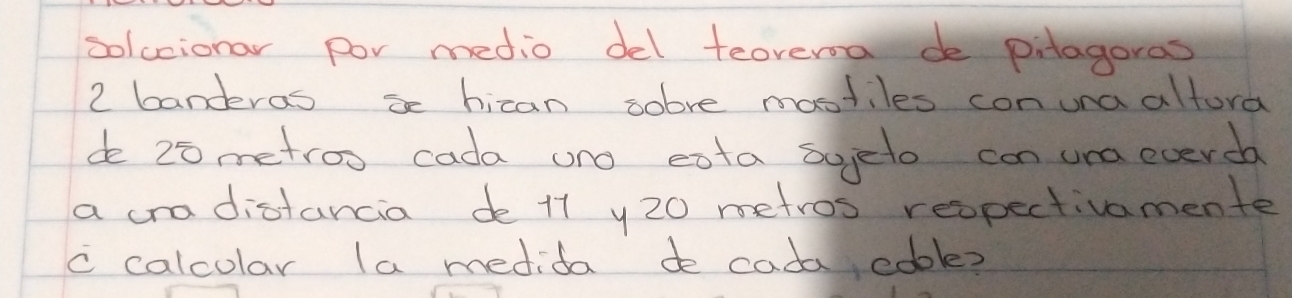 solucionar por medio del teorema de pitagoras
2 banderas se hizan sobre mastiles con una altura
de 20 metros cada uno esta sujeto con una cuerda
a una distancia de 11 y 20 metros respectivamente
¿ calcular la medida de cada cable?